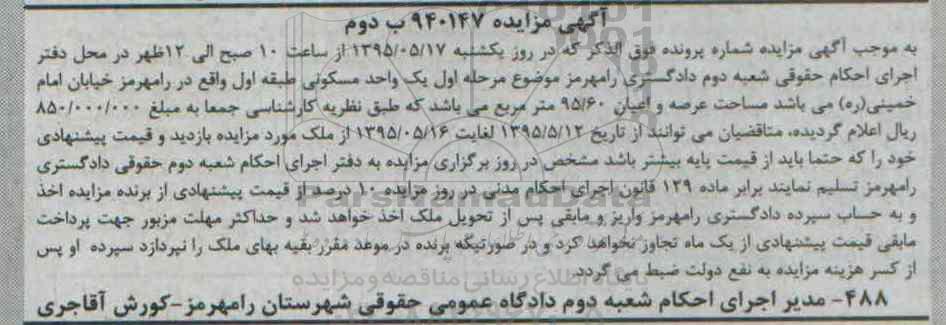 آگهی مزایده ۹۴۰۱۴۷ ب دوم
به موجب آگهی مزایده شماره پرونده فوق الذکر که در روز یکشنبه ۱۳۹۵/۰۵/۱۷ از ساعت ۱۰ صبح الی ۱۲ظهر در محل دفتر
اجرای احکام حقوقی شعبه دوم دادگستری رامهرمز موضوع مرحله اول یک واحد مسکونی طبقه اول واقع در رامهرمز خیابان امام
خمینی(ره) می باشد مساحت عرصه و اعیان ۹۵/۶۰ متر مربع می باشد که طبق نظریه کارشناسی جمعا به مبلغ ۸۵۰/۰۰۰/۰۰۰
ریال اعلام گردیده، متقاضیان می توانند از تاریخ ۱۳۹۵/۵/۱۲ لغایت ۱۳۹۵/۰۵/۱۶ از ملک مورد مزایده بازدید و قیمت پیشنهادی
خود را که حتما باید از قیمت پایه بیشتر باشد مشخص در روز برگزاری مزایده به دفتر اجرای احکام شعبه دوم حقوقی دادگستری
رامهرمز تسلیم نمایند برابر ماده ۱۲۹ قانون اجرای احکام مدنی در روز مزایده ۱۰ درصد از قیمت پیشنهادی از برنده مزایده اخذ
و به حساب سپرده دادگستری رامهرمز واریز و مابقی پس از تحویل ملک اخذ خواهد شد و حداکثر مهلت مزبور جهت پرداخت
مابقی قیمت پیشنهادی از یک ماه تجاوز نخواهد کرد و در صورتیکه برنده در موعد مقرر بقیه بهای ملک را نپردازد سپرده او پس
از کسر هزینه مزایده به نفع دولت ضبط می گردد.
۴۸۸- مدیر اجرای احکام شعبه دوم دادگاه عمومی حقوقی شهرستان رامهرمز-کورش آقاجری
ParsNamadData
پایگاه اطلاع رسانی مناقصه و مزایده